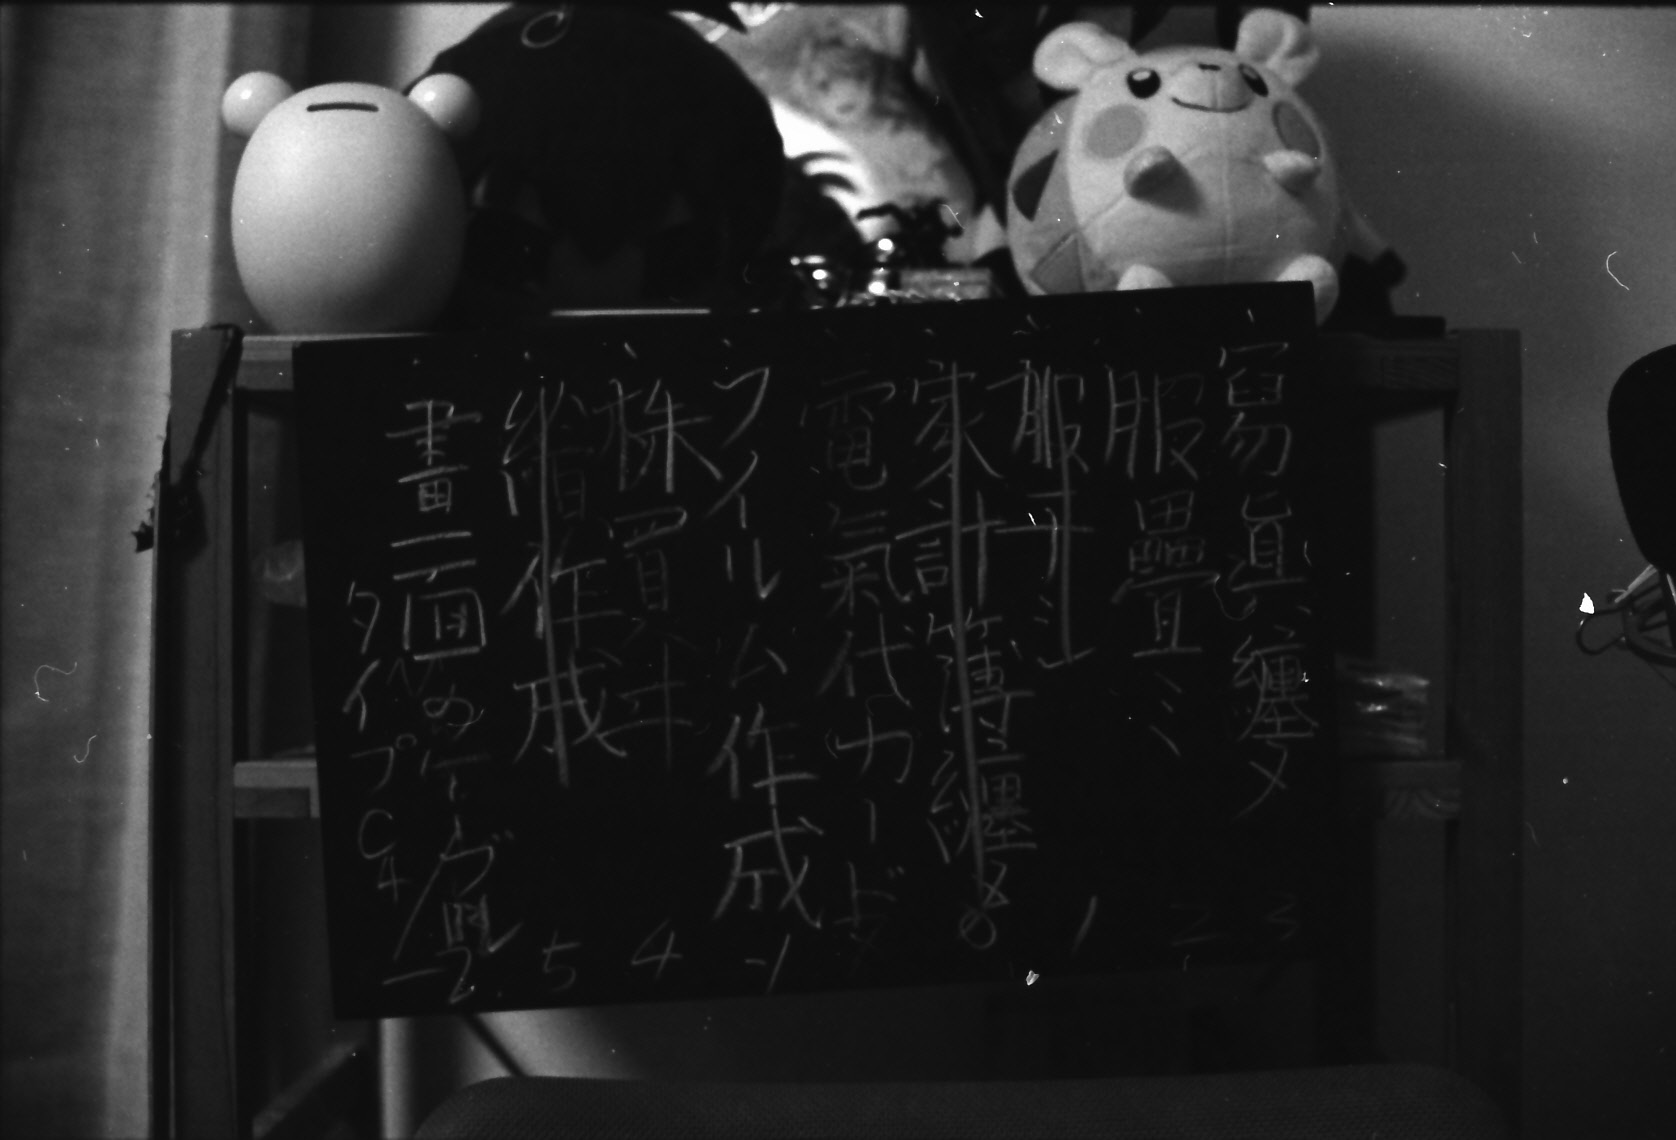 寫眞纏メ 3
服疊ミ 2
服干シ 1
家計簿纏メ 0
電氣代カード
フイルム作成 -1
株買ヰ 4
繪作成 5
畫面のデーヴ -2
タイプC4